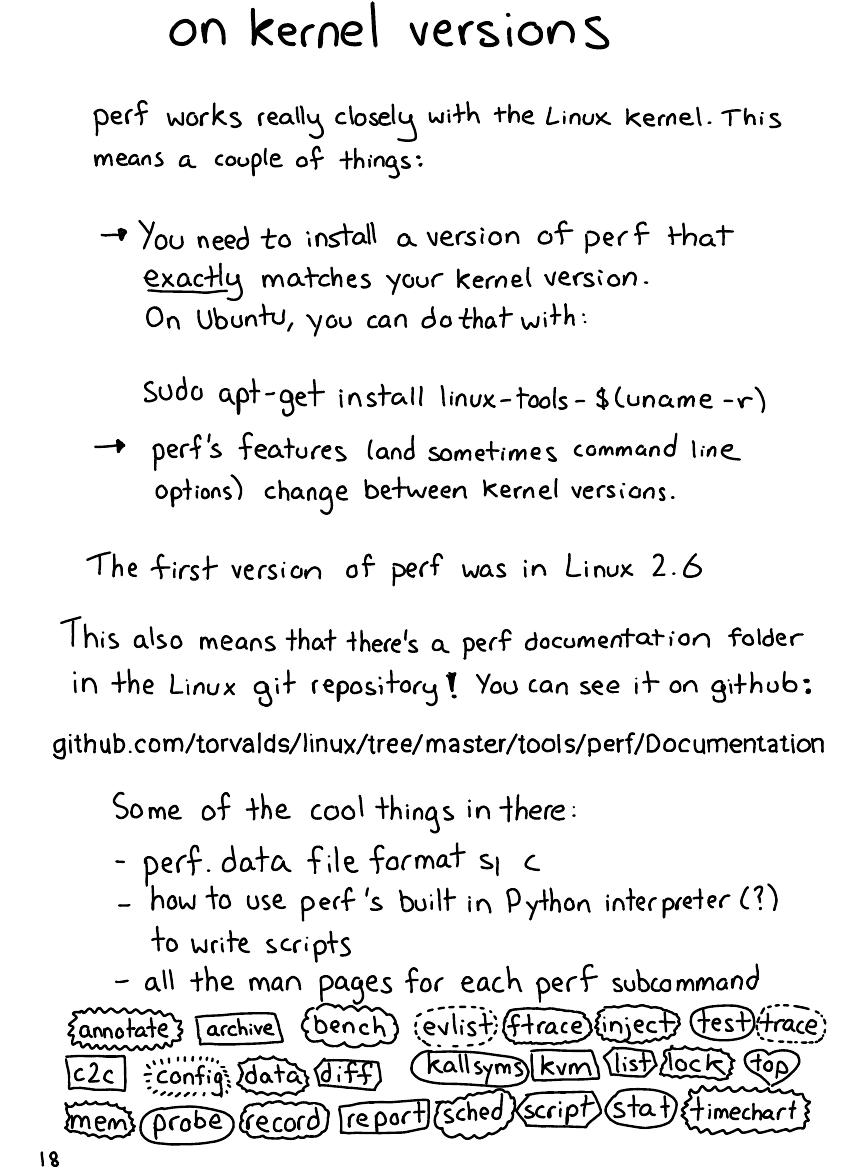 on kernel versions
perf works really closely with the Linux kernel. This
means a couple of things:
→ You need to install a version of perf that
exactly matches your kernel version.
On Ubuntu, you can do that with:
sudo apt-get install linux-tools-$(uname -r)
→ perf's features (and sometimes command line
options) change between kernel versions.
The first version of perf was in Linux 2.6
This also means that there's a perf documentation folder
in the Linux git repository! You can see it on github:
github.com/torvalds/linux/tree/master/tools/perf/Documentation
Some of the cool things in there:
- perf.data file format c
- how to use perf's built in Python interpreter (?)
to write scripts
- all the man pages for each perf subcommand
annotate archive bench evlist ftrace inject test trace
c2c config data diff kallsyms kvm list lock top
mem probe record report sched script stat timechart
18